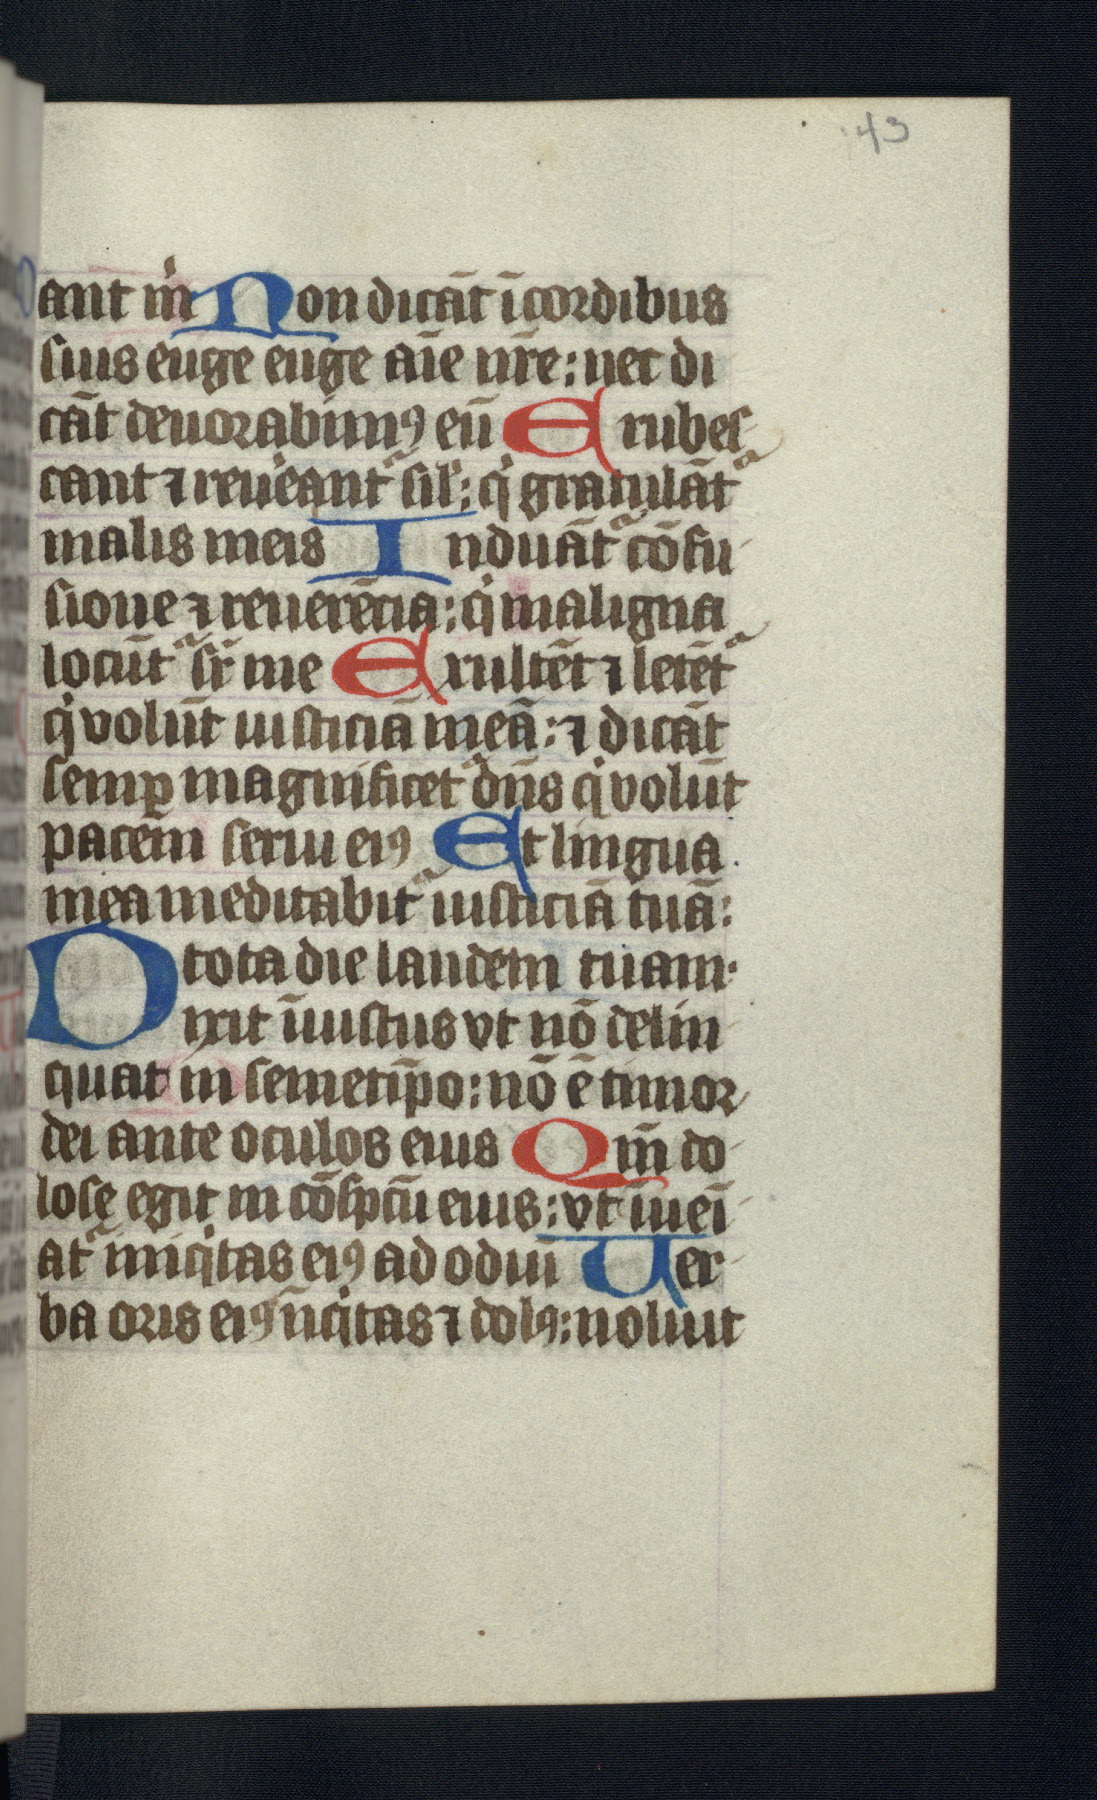 43
ant m̍ Non dicāt ī cordibus
suis euge euge aīe nr̄e: nec di
cāt deuorabimꝰ eū Erubes
cant ⁊ reuēant᷑ sil̄: qͥ gratulāt᷑
malis meis Induāt᷑ cōfu
sione ⁊ reuerētia: qͥ maligna
locūt᷑ sr̄ me Exultēt ⁊ letēt᷑
qͥ volūt iusticiā meā: ⁊ dicāt
semꝑ magnificet᷑ dn̄s qͥ volūt
pacem serui eiꝰ Et lingua
mea meditabit᷑ iusticiā tuā:
tota die laudem tuam·
Dixit īiustus vt nō delin
quat in semetip̄o: nō ē timor
dei ante oculos eius Qm̄ do
lose egit in cōspcū eius: vt īueī
at᷑ iniqͥtas eiꝰ ad odiū Uer
ba oris eiꝰ īiqͥtas ⁊ dolꝰ: noluit